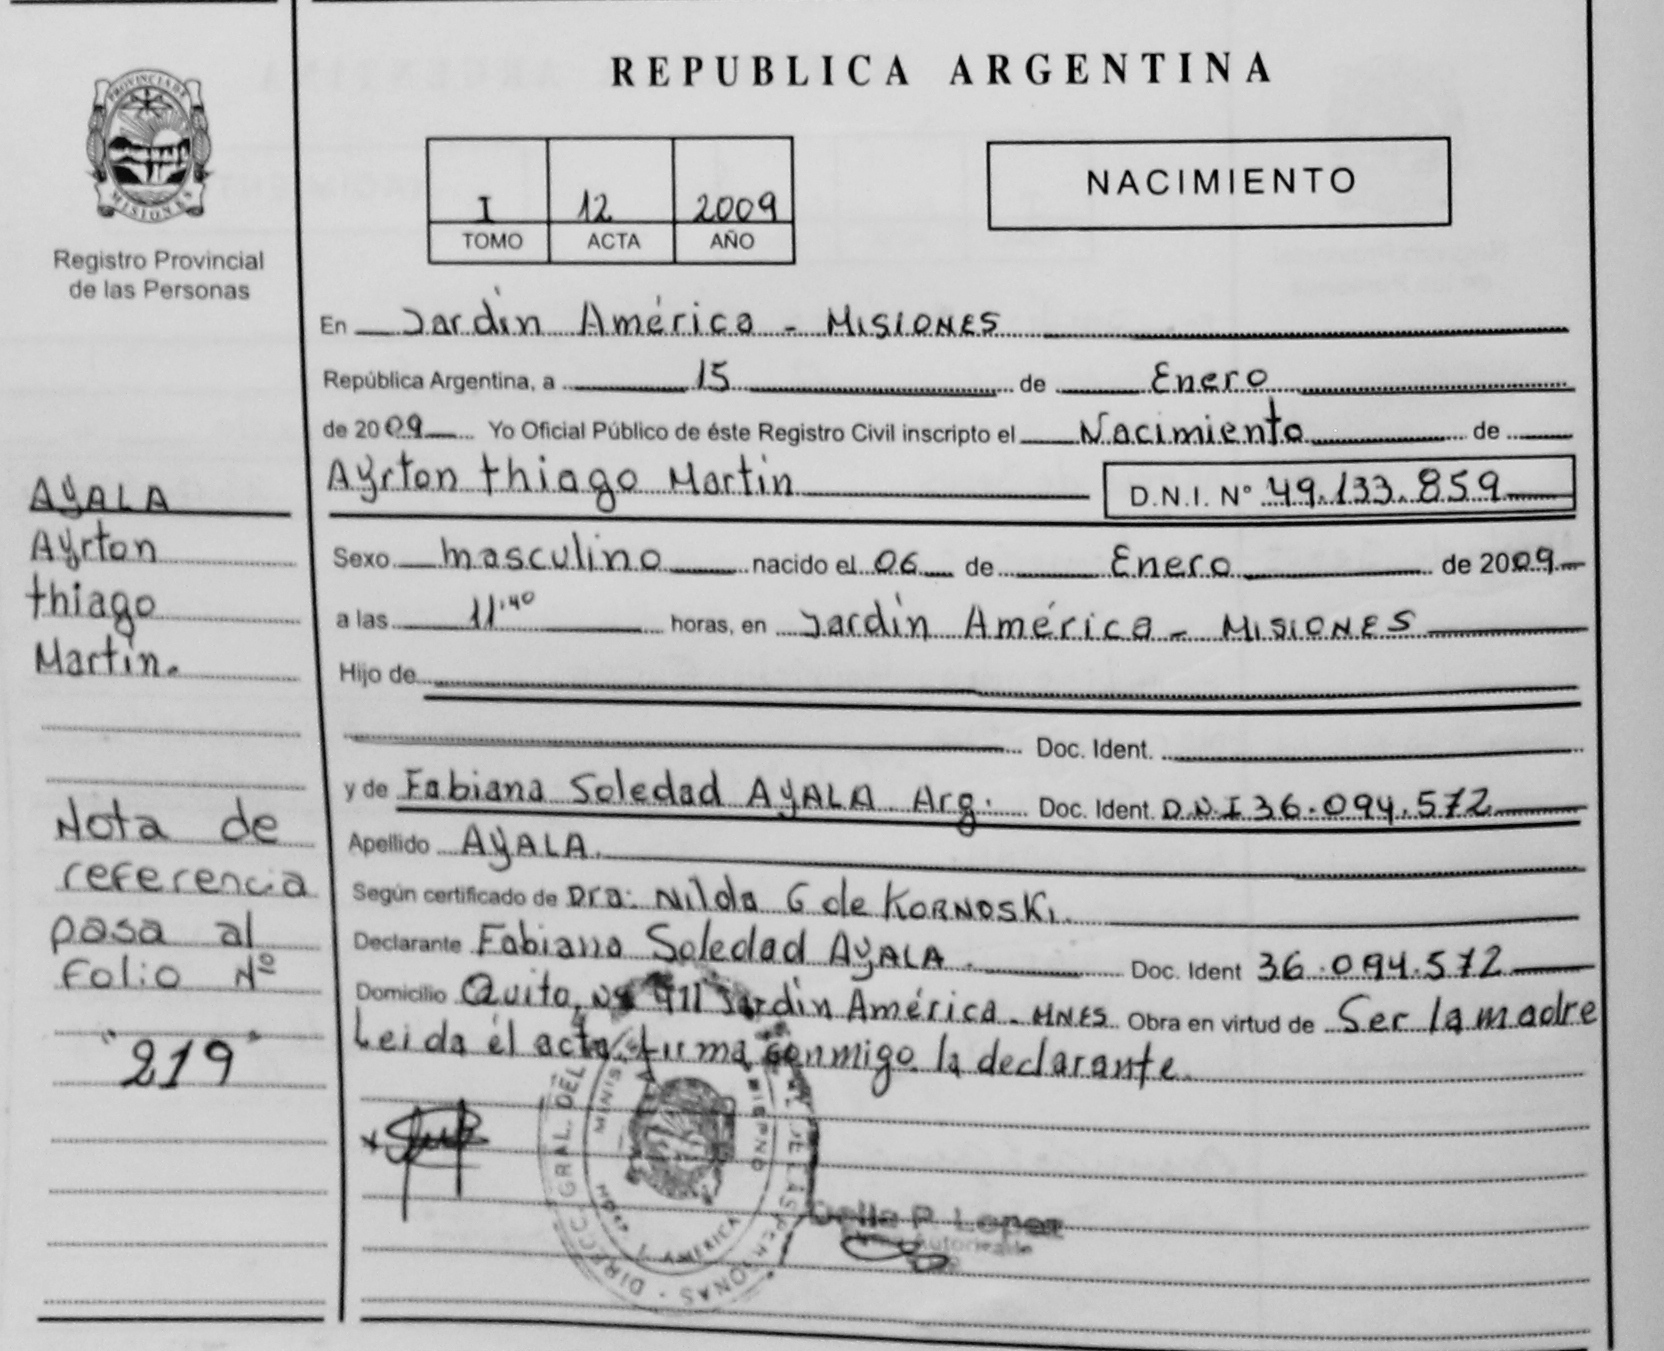 PROVINCIA DE
MISIONES
Registro Provincial
de las Personas
AYALA
Ayrton
thiago
Martín.
Nota de
referencia
pasa al
Folio Nº
"219"
REPUBLICA ARGENTINA
I 12 2009
TOMO ACTA AÑO
NACIMIENTO
En Jardín América - MISIONES
República Argentina, a 15 de Enero
de 2009 Yo Oficial Público de éste Registro Civil inscripto el Nacimiento de
Ayrton thiago Martín D.N.I. Nº 49.133.859
Sexo masculino nacido el 06 de Enero de 2009
a las 11:40 horas, en Jardín América - MISIONES
Hijo de
Doc. Ident.
y de Fabiana Soledad AYALA Arg. Doc. Ident. D.N.I 36.094.572
Apellido AYALA.
Según certificado de Dra: Nilda G de KORNOSKI.
Declarante Fabiana Soledad AYALA. Doc. Ident 36.094.572
Domicilio Quito Nº 911 Jardín América - MNES Obra en virtud de Ser la madre
Leida el acta, firma conmigo la declarante.
DIRECC. GRAL. DEL DE LAS PERSONAS
AMERICA
Lopez